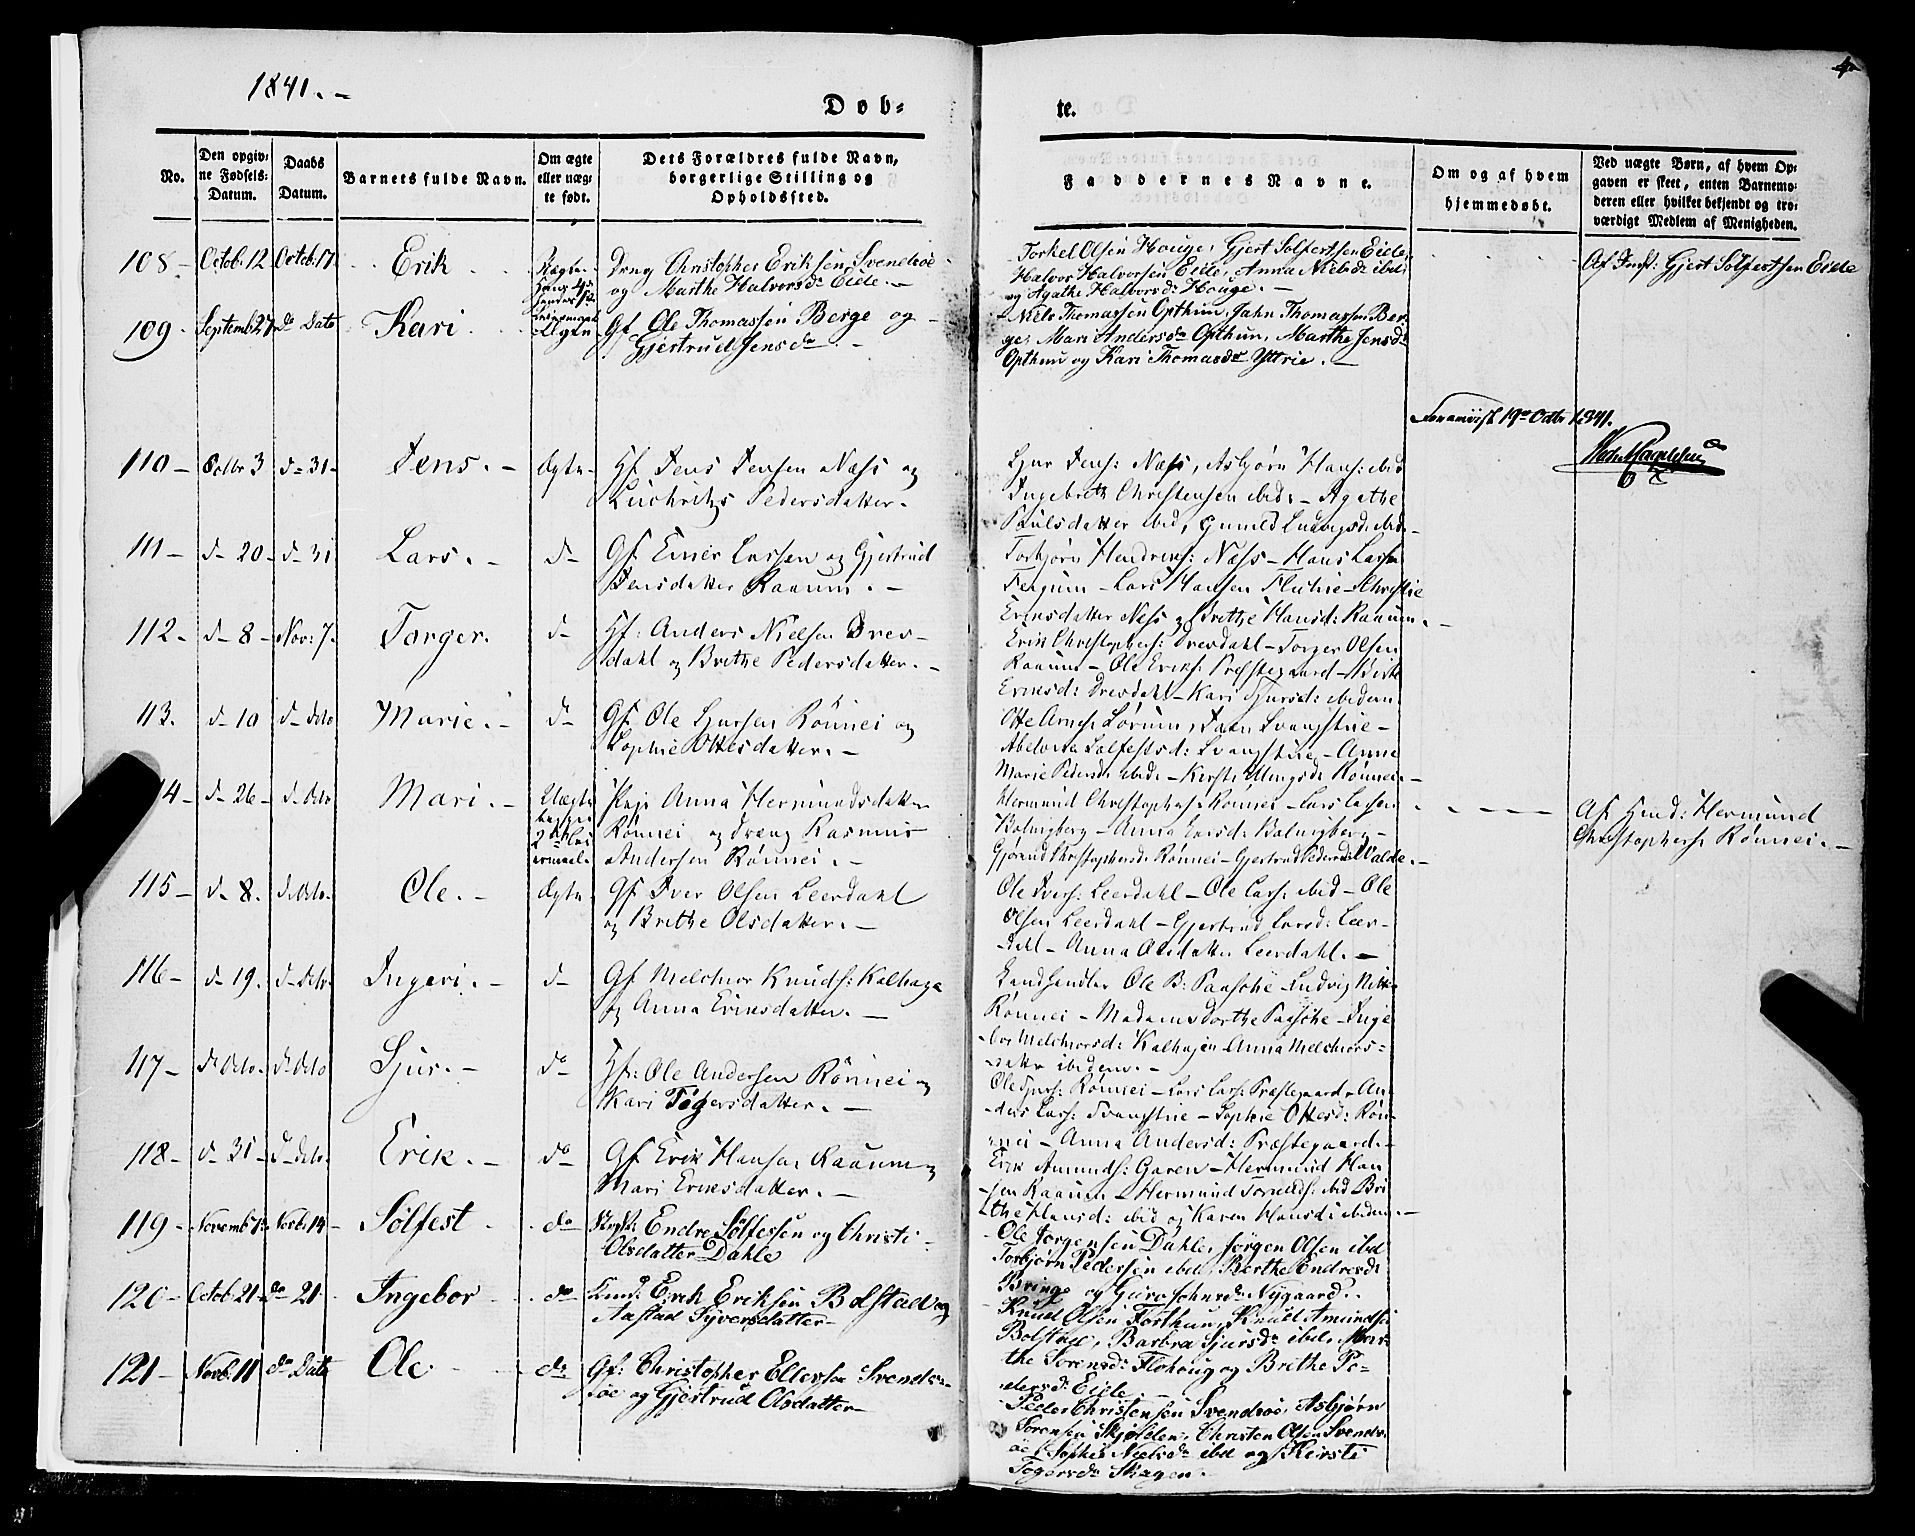 1841. -
Døb-
te.
4
No.
Den opgiv-
ne Fødsels-
Datum.
Daabs
Datum.
Barnets fulde Navn.
Om ægte
eller uæg-
te født.
Dets Forældres fulde Navn,
borgerlige Stilling og
Opholdssted.
Faddernes Navne.
Om og af hvem
hjemmedøbt.
Ved uægte Børn, af hvem Op-
gaven er skeet, enten Barnemo-
deren eller hvilket bekjendt og tro-
værdigt Medlem af Menigheden.
108- Octob. 12 Octob. 17 Erik Uægte
Dreng Christopher Eriksen Svendsøe
og Marthe Halvorsdr Eide. -
Torkel Olsen Houge, Gjert Solfestsen Eide,
Halvor Halvorsen Eide, Anna Nielsdr ibid
og Agathe Halvorsdr Houge. -
Af Indst: Gjert Solfestsen Eide
109 Septemb 27 do Dato Kari Ægte
Gf. Ole Thomassen Berge og
Gjertrud Jensdr -
Niels Thomassen Opthun, John Thomassen Ber-
ge, Mari Andersdr Opthun, Marthe Jensdr
Opthun og Kari Thomasdr Yttrie. -
19de Octbr 1841.
110- Octbr 3 d- 31- Jens. - Ægte
Hf. Jens Jensen Næss og
Pedersdatter. -
Sjur Jens: Næss, Asbjørn Hans: ibid
Ingebreth Christensen ibid: - Agathe
Poulsdatter ibid, Gunild Ludvigsd: ibid. -
111- d- 20- d- 31 Lars. - d-
Gf. Einer Larsen og Gjertrud
Jensdatter Raaum. -
Torbjørn Hendrens: Næss - Hans Larsen
Fergum - Lars Hansen - Christie
Erinsdatter Næss og Brethe Hansd: Raaum. -
112- d- 8- Nov: 7. Torger. d-
Hf: Anders Nielsen Drev-
dahl og Brethe Pedersdatter. -
Erik Christophers: Drevdahl - Torger Olsen
Raaum - Ole Eriks: Præstegaard - Birte
Erinsd: Drevdahl - Kari Sjursd: ibidem
113. d- 10 d- dito Marie. - d-
Gf. Ole Sjursen Rönnei og
Sophie Ottesdatter. -
Otte Arnes: Sørum,
Solfestsd: - Anna
Marie Pedersd: ibid. - Rönnei. -
114- d- 26- d- dito Mari. - Uægte
Pige Anna Hermundsdatter
Rönnei og Dreng Rasmus
Andersen Rönnei. -
Hermund Christophers: Rönnei - Lars Larsen
Bolnigberg - Anna Larsd: Bolnigberg -
Gjørond Christophersd: Rönnei - Gjertrud Pedersd: Walde. -
Af Hmd: Hermund
Christophers. Rönnei. -
115- d- 8. d. dito. Ole. - Ægte
Gf. Iver Olsen Leerdahl
og Brethe Olsdatter. -
Ole Ivers: Leerdahl - Ole Lars: ibid - Ole
Olsen Leerdahl - Gjertrud Larsd: Leer-
dahl - Anna Olsdatter Leerdahl. -
116- d- 19. d- dito. Ingeri. - d-
Gf. Melchior Knuds: Kalhage
og Anna Erinsdatter. -
Landhandler Ole B: Paasche - Ludvig
Rönnei - Madame Dorthe Paasche - Inge-
bor Melchiorsd: Kalhagen - Anna Melchiors-
datter ibidem. -
117- do dito. do dito Sjur. - do
Hf: Ole Andersen Rönnei og
Kari Togersdatter. -
Ole Sjurs: Rönnei - Lars Lars: Præstegaard - An-
ders Lars: - Sophie Ottesd: Rön-
nei - Anna Andersd: Præstegaard. -
118- d- 31- do dito. Erik. - do
Gf. Erik Hansen Raaum og
Mari Erinsdatter. -
Erik Amunds: Garen - Hermund Han-
sen Raaum - Hermund ibid Bri-
the Hansd: ibid og Karen Hansd: ibidem. -
119- Novemb 7. Novbr 14- Sølfest do
Endre Sølfessen og Christi
Olsdatter Dahle
Ole Jørgensen Dahle, Jørgen Olsen ibd
Torbjørn Pedersen ibid, Berthe Endresdr
Bringe og Guro Johnsdr Nygaard. -
120- Octob. 21- do 21 Ingebor do
Erik Eriksen Bolstad og
Aastad Syversdatter -
Knud Olsen Forthun, Knud Amundsen
Bolstad, Barbra Sjursdr ibid, Mar-
the Sørensdr Flohoug og Brethe Pe-
dersdr Eide. -
121- Novb. 11 do Dato Ole do
Gf: Christopher Ellersen Svends-
øe og Gjertrud Olsdatter -
Peder Christensen Svendsøe, Asbjørn
Sørensen Skjolden, Christen Olsen Svends-
øe, Sophie Nielsdr ibd og Kirsti
Togersdr Skagen. -